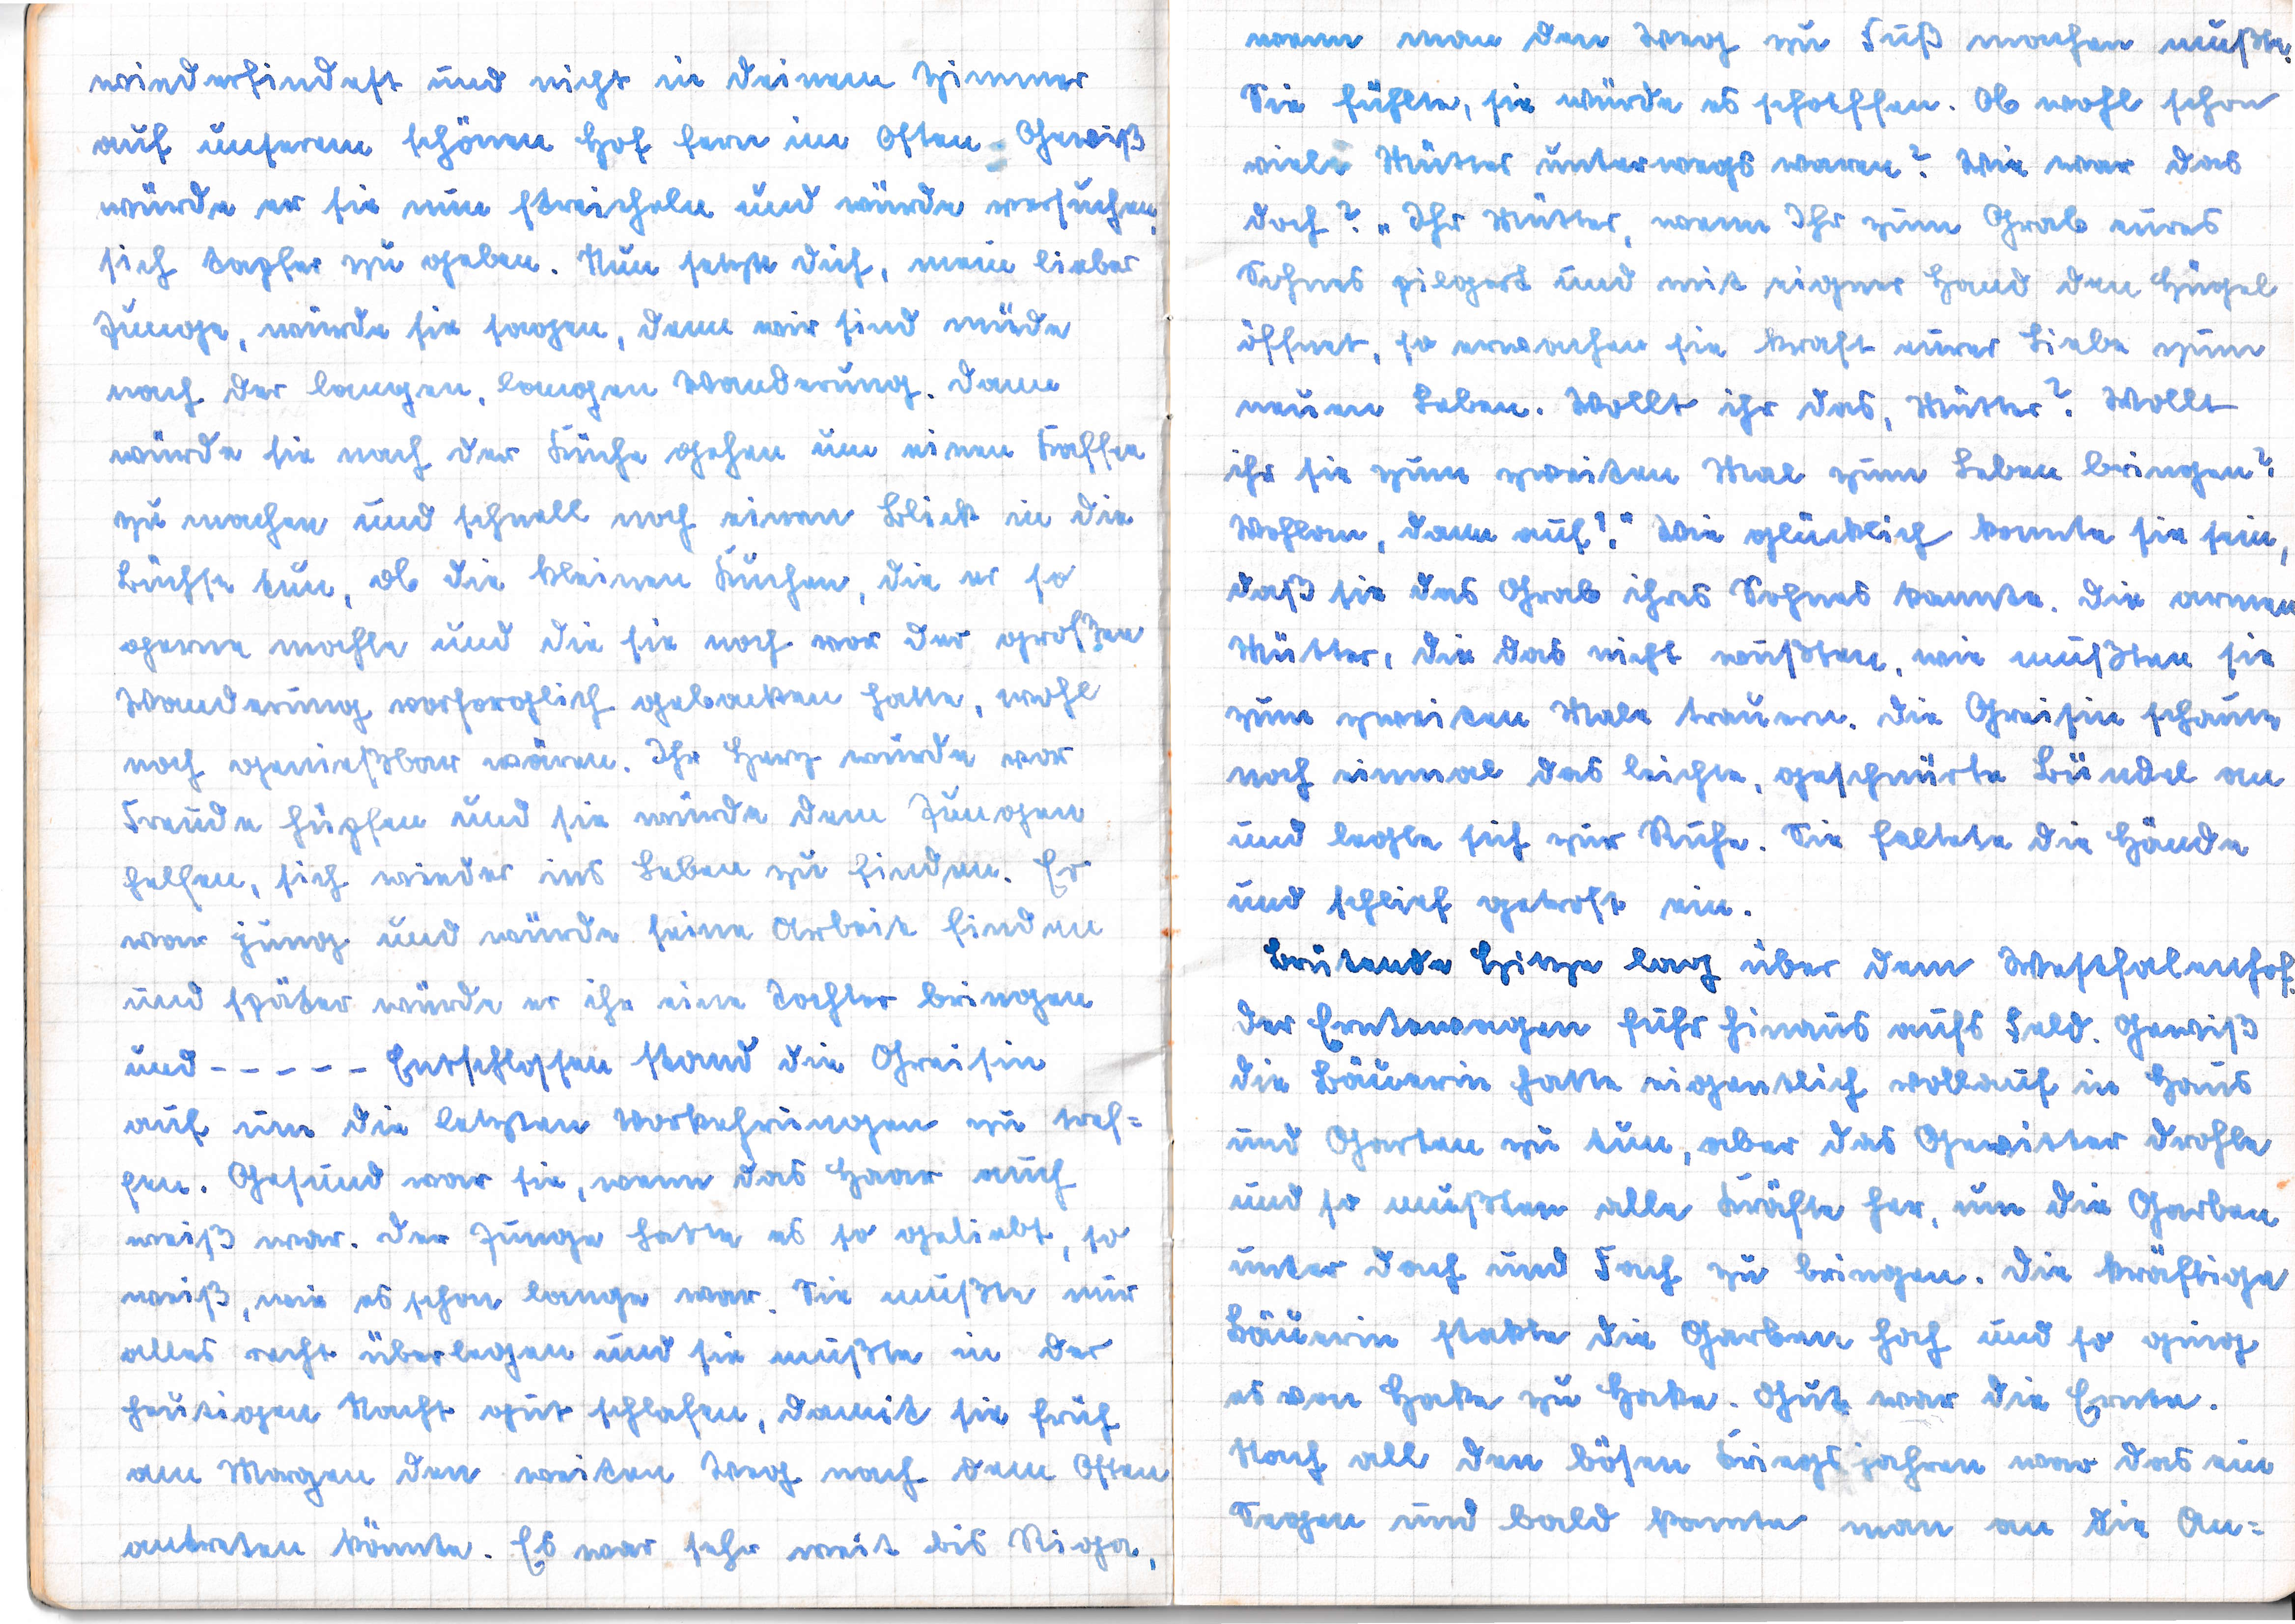 wiederfindest und nicht in deinem Zimmer
auf unserem schönen Hof fern im Osten. Gewiß
würde er sie nun streicheln und würde versuchen,
sich tapfer zu geben. Nun setze dich, mein lieber
Junge, würde sie sagen, denn wir sind müde
nach der langen, langen Wanderung. Dann
würde sie nach der Küche gehen um einen Kaffee
zu machen und schnell noch einen Blick in die
Büchse tun, ob die kleinen Kuchen, die er so
gerne mochte und die sie noch vor der großen
Wanderung vorsorglich gebacken hatte, wohl
noch genießbar wären. Ihr Herz würde vor
Freude hüpfen und sie würde dem Jungen
helfen, sich wieder ins Leben zu finden. Er
war jung und würde seine Arbeit finden
und später würde er ihr eine Tochter bringen
und - - - - - Entschlossen stand die Greisin
auf um die letzten Vorkehrungen zu tref=
fen. Gesund war sie, wenn das Haar auch
weiß war. Der Junge hatte es so geliebt, so
weiß, wie es schon lange war. Sie mußte nur
alles recht überlegen und sie mußte in der
heutigen Nacht gut schlafen, damit sie früh
am Morgen den weiten Weg nach dem Osten
antreten könnte. Es war sehr weit bis Riga,
wenn man den Weg zu Fuß machen mußte.
Sie fühlte, sie würde es schaffen. Ob wohl schon
viele Mütter unterwegs waren? Wie war das
doch? „Ihr Mütter, wenn Ihr zum Grab eures
Sohnes pilgert und mit eigner Hand den Hügel
öffnet, so erwachen sie kraft eurer Liebe zum
neuen Leben. Wollt ihr das, Mütter? Wollt
ihr sie zum zweiten Mal zum Leben bringen?
Wohlan, dann auf!" Wie glücklich konnte sie sein,
daß sie das Grab ihres Sohnes kannte. Die armen
Mütter, die das nicht wußten, wie mußten sie
zum zweiten Male trauern. Die Greisin schaute
noch einmal das leichte, geschnürte Bündel an
und legte sich zur Ruhe. Sie faltete die Hände
und schlief getrost ein.
Brütende Hitze lag über dem Westfalenhof.
Der Erntewagen fuhr hinaus aufs Feld. Gewiß
die Bäuerin hatte eigentlich vollauf in Haus
und Garten zu tun, aber das Gewitter drohte
und so mußten alle Kräfte her, um die Garben
unter Dach und Fach zu bringen. Die kräftige
Bäuerin stakte die Garben hoch und so ging
es von Hoke zu Hoke. Gut war die Ernte.
Nach all den bösen Kriegsjahren war das ein
Segen und bald konnte man an die An=